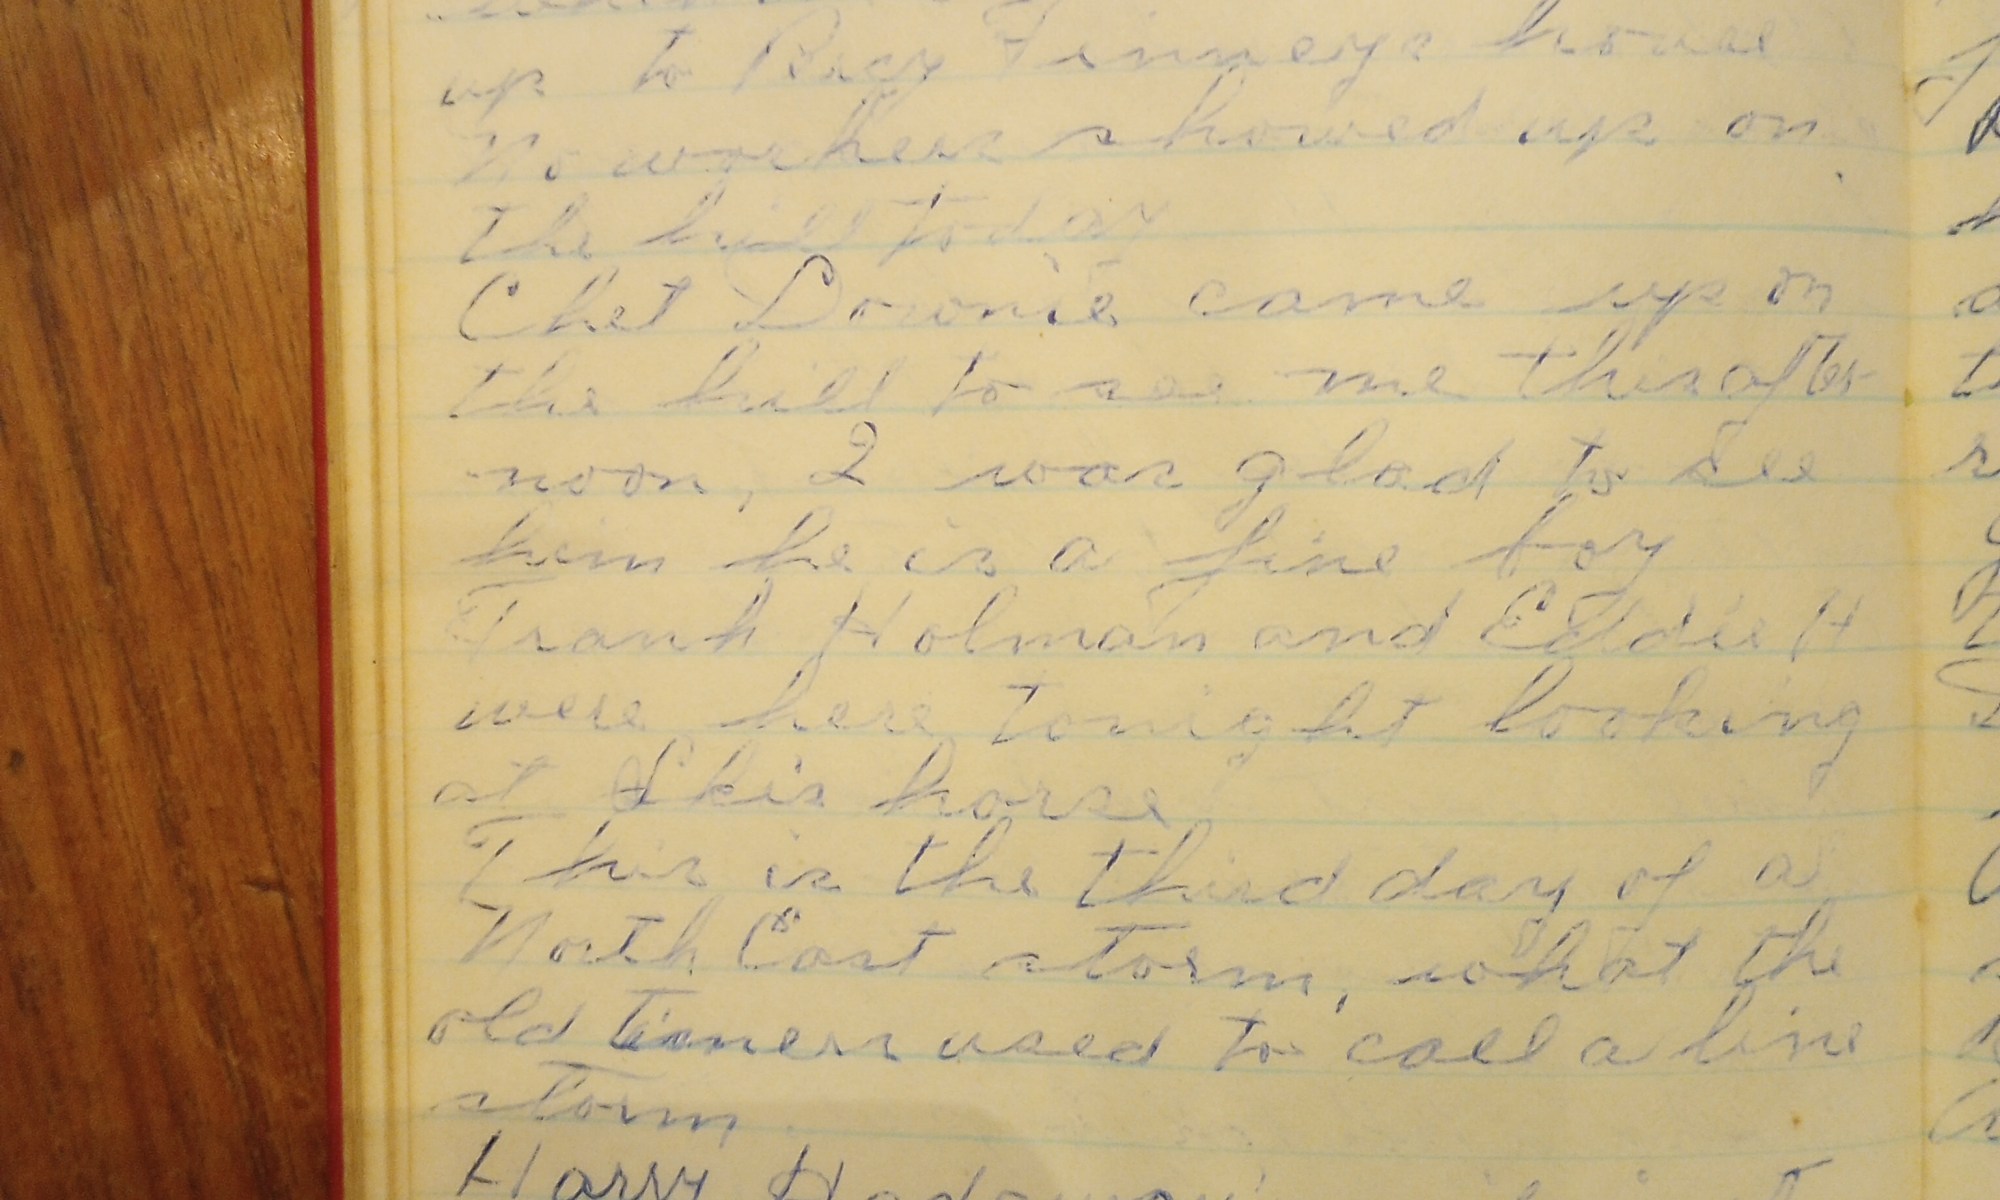 up to Percy Finneys house
No workers showed up on
the hill today
Chet Downie came up on
the hill to see me this after
noon, I was glad to see
him he is a fine boy
Frank Holman and Eddie H
were here tonight looking
at Skis horse
This is the third day of a
North East storm, what the
old timers used to call a line
storm
Harry